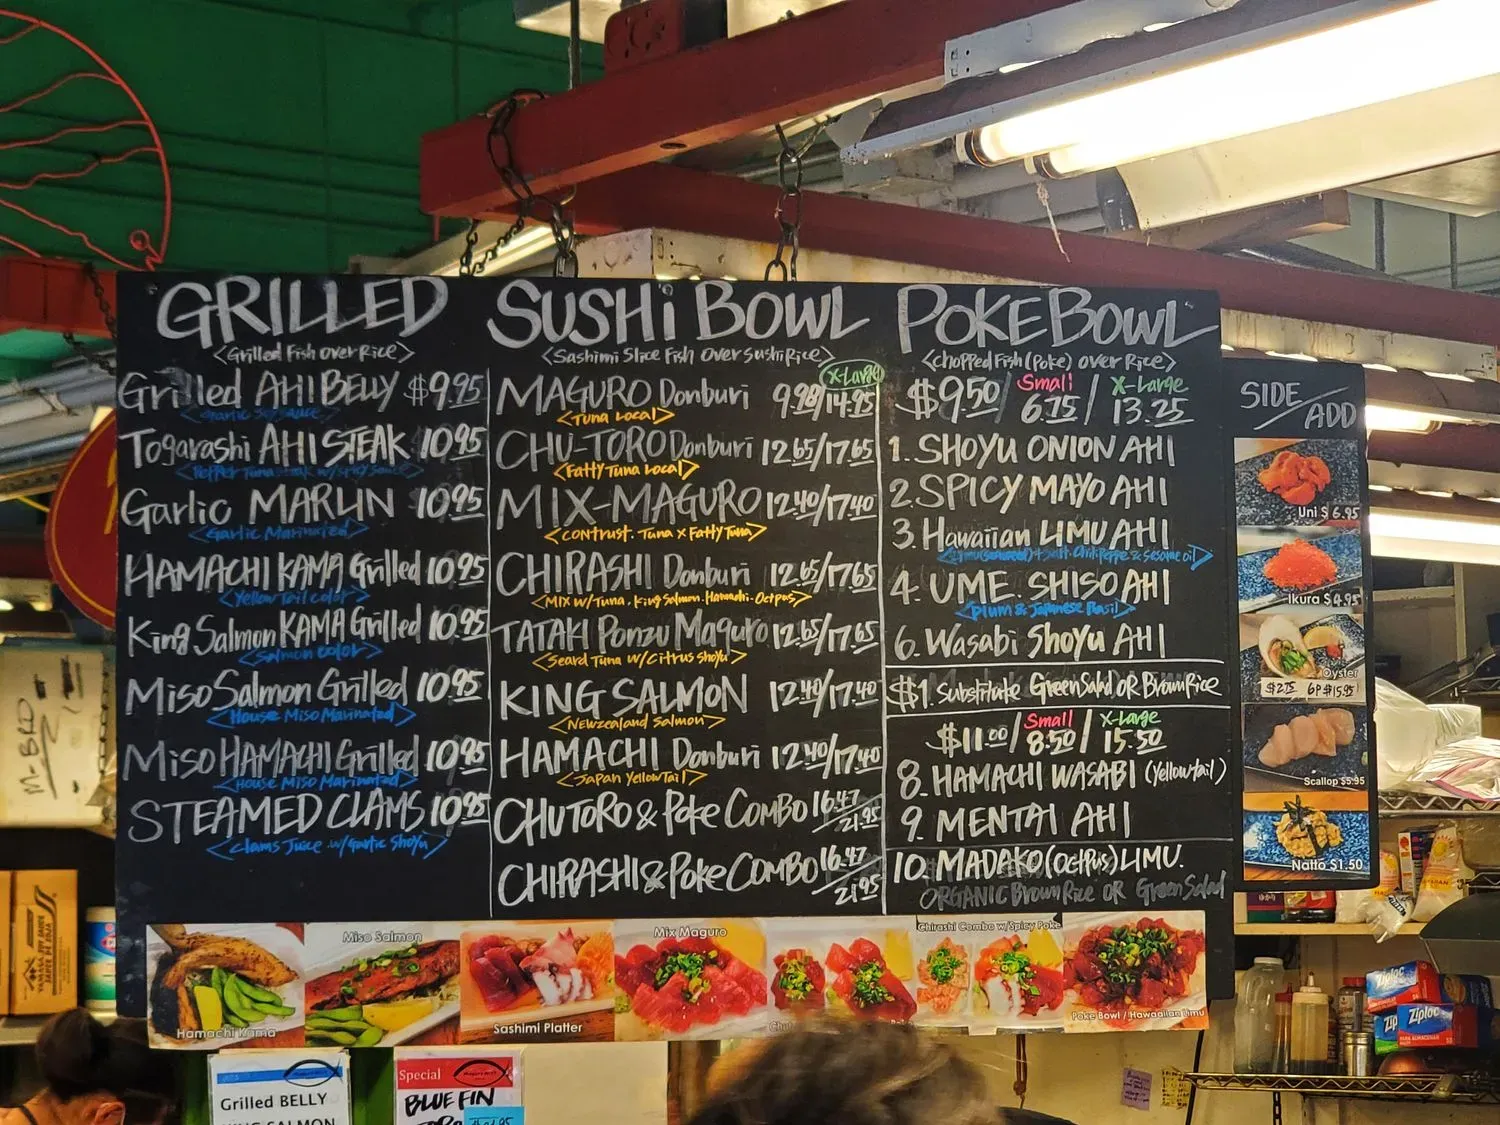 GRILLED
<Grilled Fish Over Rice>
Grilled AHI BELLY $9.95
<Garlic Soy Sauce>
Togarashi AHI STEAK 10.95
<Pepper Tuna Steak w/ Spicy Sauce>
Garlic MARLIN 10.95
<Garlic Marinated>
HAMACHI KAMA Grilled 10.95
<Yellow Tail color>
King Salmon KAMA Grilled 10.95
<Salmon color>
Miso Salmon Grilled 10.95
<House Miso Marinated>
Miso HAMACHI Grilled 10.95
<House Miso Marinated>
STEAMED CLAMS 10.95
<Clams Juice w/ Garlic Shoyu>
SUSHI BOWL
<Sashimi Slice Fish Over Sushi Rice>
X-Large
MAGURO Donburi 9.98/14.95
<Tuna Local>
CHU-TORO Donburi 12.65/17.65
<Fatty Tuna Local>
MIX-MAGURO 12.40/17.40
<Contrust. Tuna x Fatty Tuna>
CHIRASHI Donburi 12.65/17.65
<MIX w/Tuna. King Salmon. Hamachi. Octpus>
TATAKI Ponzu Maguro 12.65/17.65
<Seard Tuna w/Citrus Shoyu>
KING SALMON 12.40/17.40
<Newzealand Salmon>
HAMACHI Donburi 12.40/17.40
<Japan Yellow Tail>
CHUTORO & Poke COMBO 16.47/21.95
CHIRASHI & Poke COMBO 16.47/21.95
POKE BOWL
<Chopped Fish (Poke) over Rice>
Small X-Large
$9.50 / 6.75 / 13.25
1. SHOYU ONION AHI
2. SPICY MAYO AHI
3. Hawaiian LIMU AHI
4. UME. SHISO AHI
<Plum & Japanese Basil>
6. Wasabi Shoyu AHI
$1. Substitute Green Salad OR Brown Rice
Small X-Large
$11.00 / 8.50 / 15.50
8. HAMACHI WASABI (Yellowtail)
9. MENTAI AHI
10. MADAKO (Octpus) LIMU.
ORGANIC Brown Rice OR Green Salad
SIDE/ADD
Uni $6.95
Ikura $4.95
Oyster
$2.75 6P $15.95
Scallop $5.95
Natto $1.50
Hamachi Kama
Miso Salmon
Sashimi Platter
Mix Maguro
Chirashi Combo w/Spicy Poke
Poke Bowl / Hawaiian Limu
Grilled BELLY
KING SALMON
Special
BLUE FIN
M-BRD
Ziploc
Ziploc